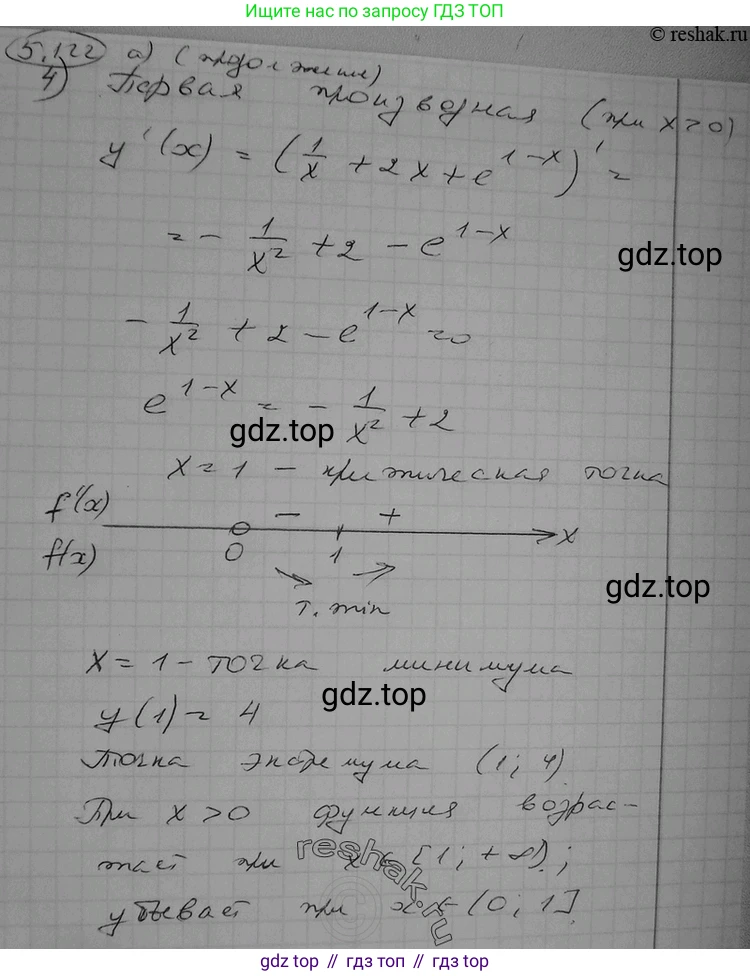 Найдите больше по запросу ГДЗ ТОП
© reshak.ru
5.122 а) (продолжение)
4) Первая производная (при x>0)
y'(x) = (1/x + 2x + e^(1-x))' =
= - 1/x² + 2 - e^(1-x)
gdz.top
- 1/x² + 2 - e^(1-x) = 0
e^(1-x) = - 1/x² + 2
gdz.top
x = 1 - критическая точка
f'(x) - +
f(x) 0 1 x
gdz.top
т. min
x = 1 - точка минимума
gdz.top
y(1) = 4
Точка экстремума (1; 4)
При x > 0 функция возрас-
тает при x ∈ [1; +∞);
reshak.ru
убывает при x ∈ (0; 1]
gdz.top // гдз топ // gdz.top